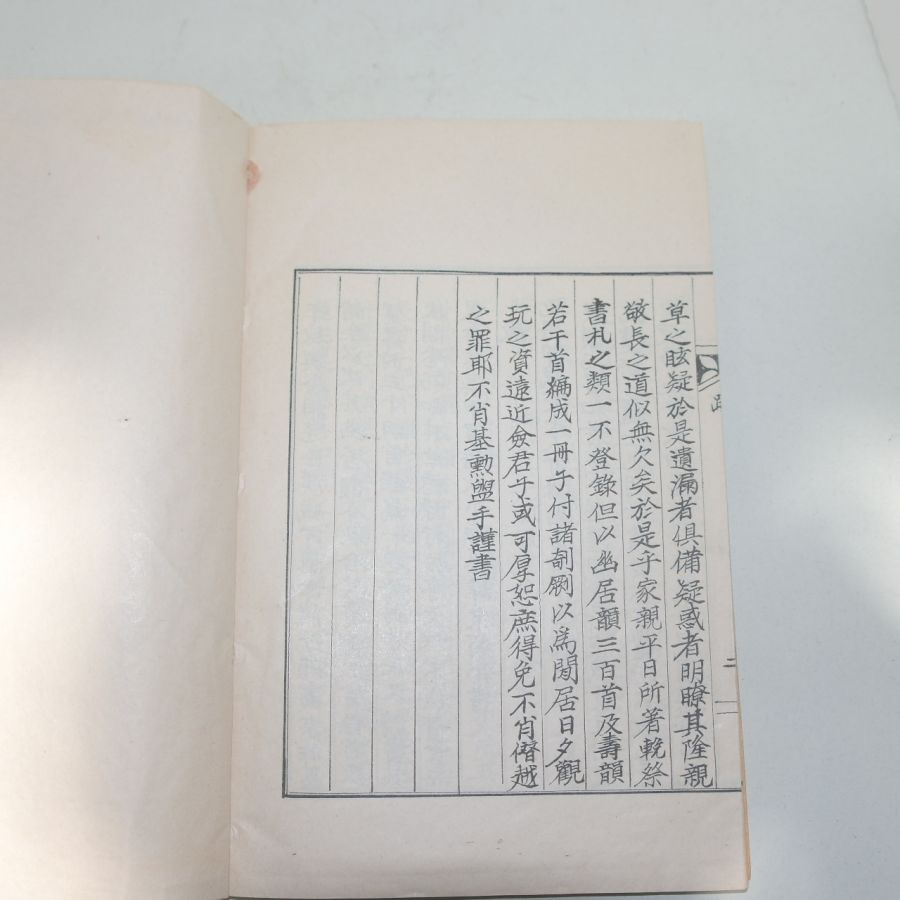 草之眩疑於是遺漏者俱備疑惑者明瞭其隆親
敬長之道似無欠矣於是乎家親平日所著輓祭
書札之類一不登錄但以幽居韻三百首及壽韻
若干首編成一冊子付諸剞劂以爲閒居日夕觀
玩之資遠近僉君子或可厚恕庶得免不肖僭越
之罪耶不肖基勳盥手謹書
二